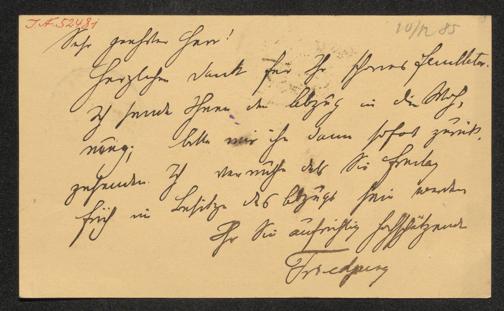 I.N. 52481
10/12 85
Sehr geehrter Herr!
Herzlichen Dank für Ihr schönes Feuilleton.
Ich sende Ihnen den Abzug in die Woh,
nung; bitte mir ihn dann sofort zurück,
zusenden. Ich vermuthe daß Sie Freitag
früh im Besitze des Abzugs sein werden
Ihr Sie aufrichtig hochschätzender